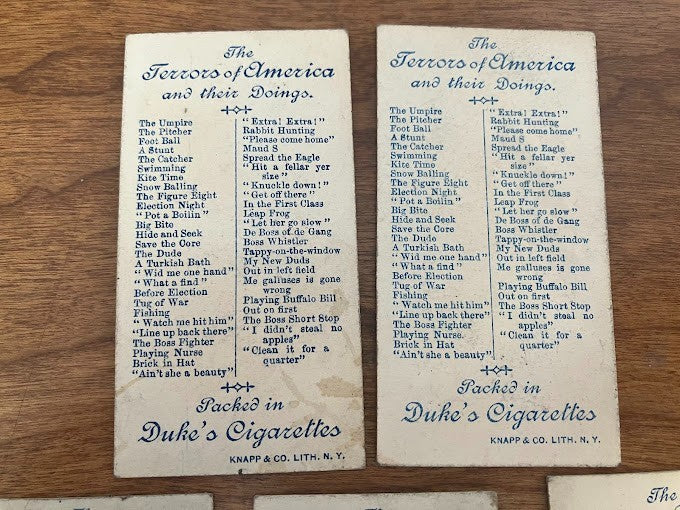 The
Terrors of America
and their Doings.
The Umpire
The Pitcher
Foot Ball
A Stunt
The Catcher
Swimming
Kite Time
Snow Balling
The Figure Eight
Election Night
"Pot a Boilin"
Big Bite
Hide and Seek
Save the Core
The Dude
A Turkish Bath
"Wid me one hand"
"What a find"
Before Election
Tug of War
Fishing
"Watch me hit him"
"Line up back there"
The Boss Fighter
Playing Nurse
Brick in Hat
"Ain't she a beauty"
"Extra! Extra!"
Rabbit Hunting
"Please come home"
Maud S
Spread the Eagle
"Hit a fellar yer
size"
"Knuckle down!"
"Get off there"
In the First Class
Leap Frog
"Let her go slow"
De Boss of de Gang
Boss Whistler
Tappy-on-the-window
My New Duds
Out in left field
Me galluses is gone
wrong
Playing Buffalo Bill
Out on first
The Boss Short Stop
"I didn't steal no
apples"
"Clean it for a
quarter"
Packed in
Duke's Cigarettes
KNAPP & CO. LITH. N. Y.
The
Terrors of America
and their Doings.
The Umpire
The Pitcher
Foot Ball
A Stunt
The Catcher
Swimming
Kite Time
Snow Balling
The Figure Eight
Election Night
"Pot a Boilin"
Big Bite
Hide and Seek
Save the Core
The Dude
A Turkish Bath
"Wid me one hand"
"What a find"
Before Election
Tug of War
Fishing
"Watch me hit him"
"Line up back there"
The Boss Fighter
Playing Nurse.
Brick in Hat
"Ain't she a beauty"
"Extra! Extra!"
Rabbit Hunting
"Please come home"
Maud S
Spread the Eagle
"Hit a fellar yer
size"
"Knuckle down!"
"Get off there"
In the First Class
Leap Frog
"Let her go slow"
De Boss of de Gang
Boss Whistler
Tappy-on-the-window
My New Duds
Out in left field
Me galluses is gone
wrong
Playing Buffalo Bill
Out on first
The Boss Short Stop
"I didn't steal no
apples"
"Clean it for a
quarter"
Packed in
Duke's Cigarettes
KNAPP & CO. LITH. N. Y.
The